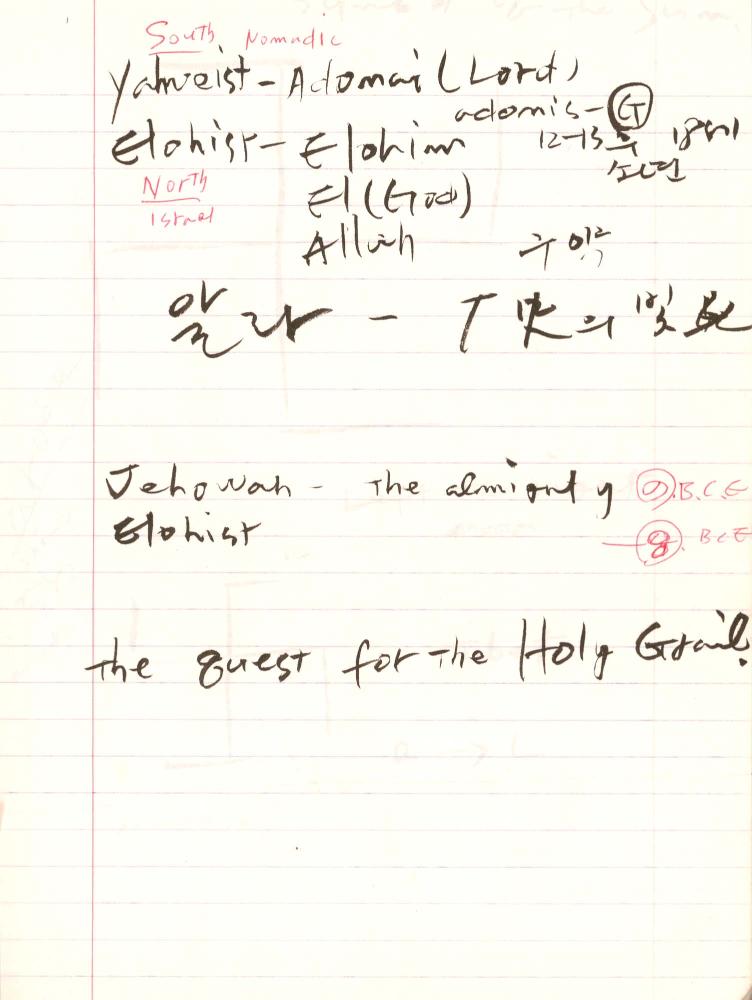 South Nomadic
Yahweist - Adonai (Lord)
adonis - G
Elohist - Elohim
12-13 18세
소년
North
Israel
El (God)
Allah
구약
알라 -
Jehovah - the almighty B.C.E
Elohist 8. BCE
the quest for the Holy Grail.